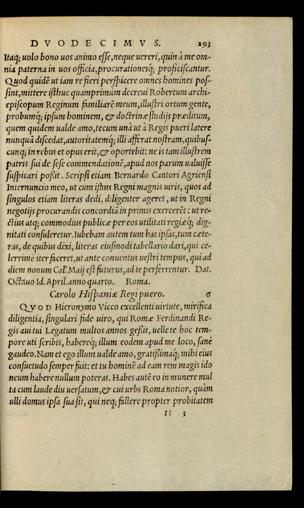 DVODECIMVS. 293
Itaq; uolo bono uos animo esse, neque uereri, quin à me om-
nia paterna in uos officia, procurationesq; proficiscantur.
Quod quidẽ ut iam re fieri perspicere omnes homines pos-
sint, mittere isthuc quamprimum decreui Robertum archi-
episcopum Reginum familiarẽ meum, illustri ortum gente,
probumq; ipsum hominem, & doctrinæ studijs præditum,
quem quidem ualde amo, tecum unà ut à Regis pueri latere
nunquã discedat, autoritatemq; illi affirat nostram, quibus-
cunq; in rebus et opus erit, & oportebit: ne is tam illustrem
patris sui de sese commendationẽ, apud nos parum ualuisse
suspicari possit. Scripsi etiam Bernardo Cantori Agriensi
Internuncio meo, ut cum istius Regni magnis uiris, quos ad
singulos etiam literas dedi, diligenter ageret, ut in Regni
negotijs procurandis concordia in primis exercerẽt: ut re-
ctius atq; commodius publicæ per eos utilitati regiæq; dig-
nitati consuleretur. Iubebam autem tum has ipsas, tum cæte-
ras, de quibus dixi, literas eiusmodi tabellario dari, qui ce-
lerrimè iter faceret, ut ante conuentus uestri tempus, qui ad
diem nonum Cal. Maij est futurus, ad te perferrentur. Dat.
Octauo Id. April. anno quarto. Roma.
Carolo Hispaniæ Regi puero. 6
QVOD Hieronymo Vicco excellenti uirtute, mirifica
diligentia, singulari fide uiro, qui Romæ Ferdinandi Re-
gis aui tui Legatum multos annos gessit, uelle te hoc tem-
pore uti scribis, habereq; illum eodem apud me loco, sanè
gaudeo. Nam et ego illum ualde amo, gratissimaq; mihi eius
consuetudo semper fuit: et tu hominẽ ad eam rem magis ido
neum habere nullum poteras. Habes autẽ eo in munere mul
ta cum laude diu uersatum, & cui urbs Roma notior, quàm
ulli domus ipsa sua sit, qui neq; fallere propter probitatem
tt 3